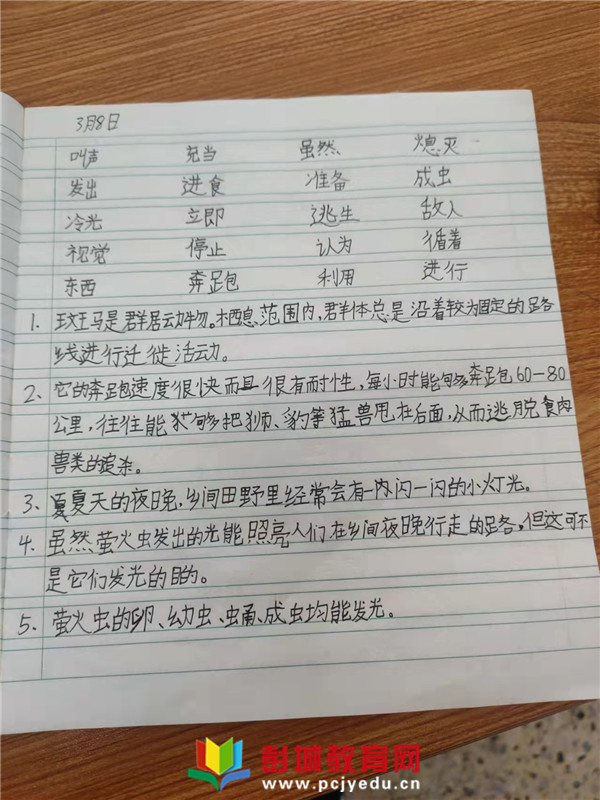 3月8日
叫声 充当 虽然 熄灭
发出 进食 准备 成虫
冷光 立即 逃生 敌人
视觉 停止 认为 循着
东西 奔跑 利用 进行
1、斑马是群居动物。栖息范围内,群体总是沿着较为固定的路
线进行迁徙活动。
2、它的奔跑速度很快而且很有耐性,每小时能够奔跑60-80
公里,往往能够把狮、豹等猛兽甩在后面,从而逃脱食肉
兽类的追杀。
3、夏夏天的夜晚,乡间田野里经常会有一闪一闪的小灯光。
4、虽然萤火虫发出的光能照亮人们在乡间夜晚行走的路,但这可不
是它们发光的目的。
5、萤火虫的卵、幼虫、蛹、成虫均能发光。
彭城教育网
www.pcjyedu.cn